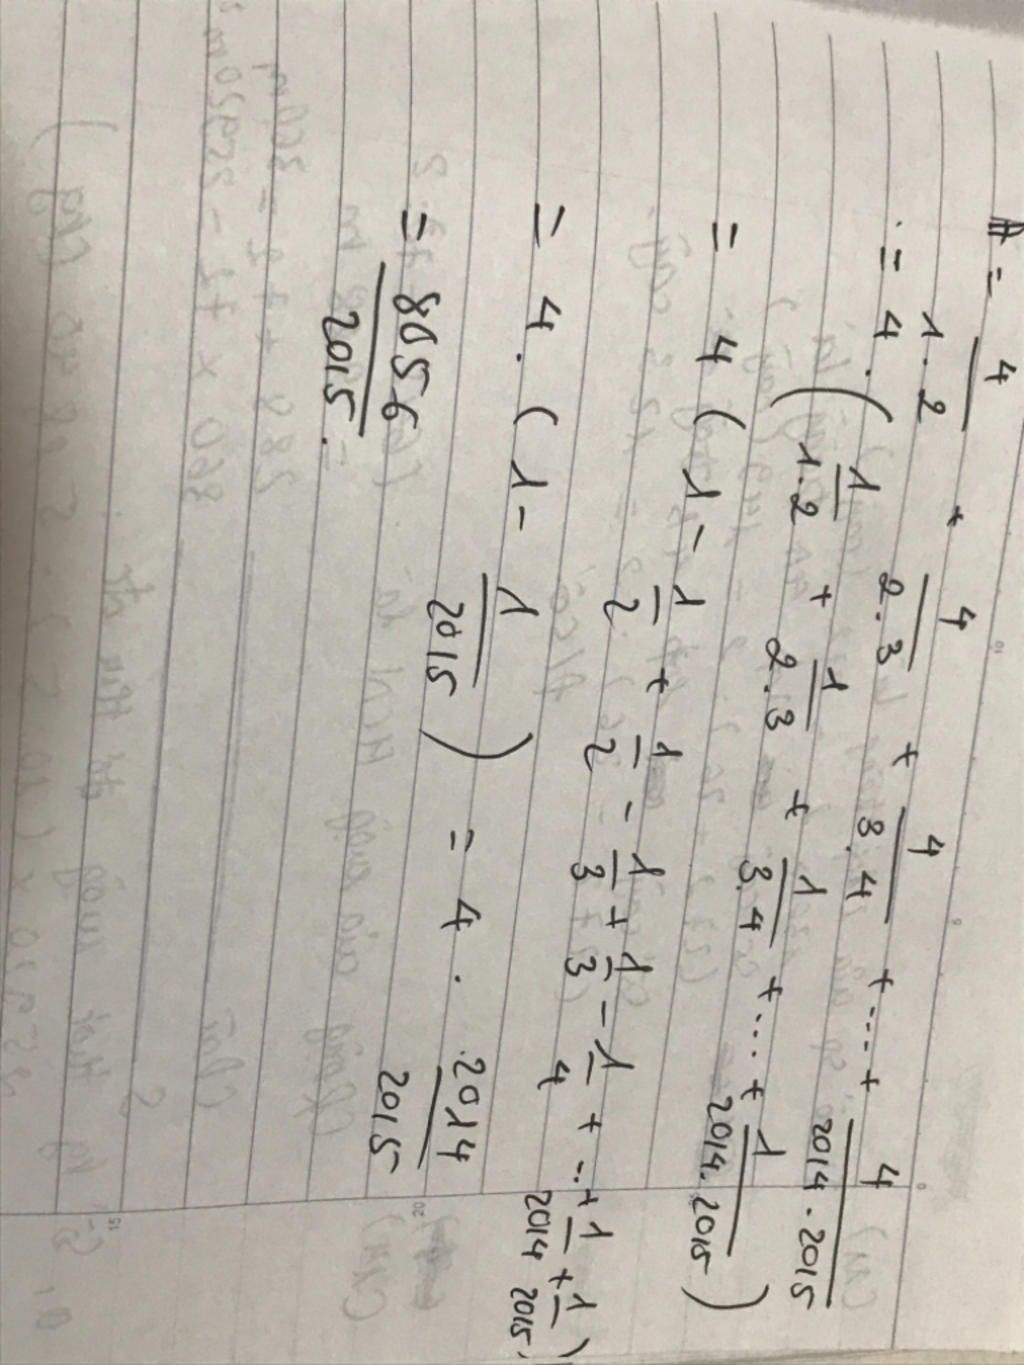 A = 4/1.2 + 4/2.3 + 4/3.4 + .... + 4/2014.2015
= 4. ( 1/1.2 + 1/2.3 + 1/3.4 + .... + 1/2014.2015 )
= 4 ( 1 - 1/2 + 1/2 - 1/3 + 1/3 - 1/4 + ... + 1/2014 + 1/2015 )
= 4 . ( 1 - 1/2015 ) = 4 . 2014/2015
= 8056/2015 .